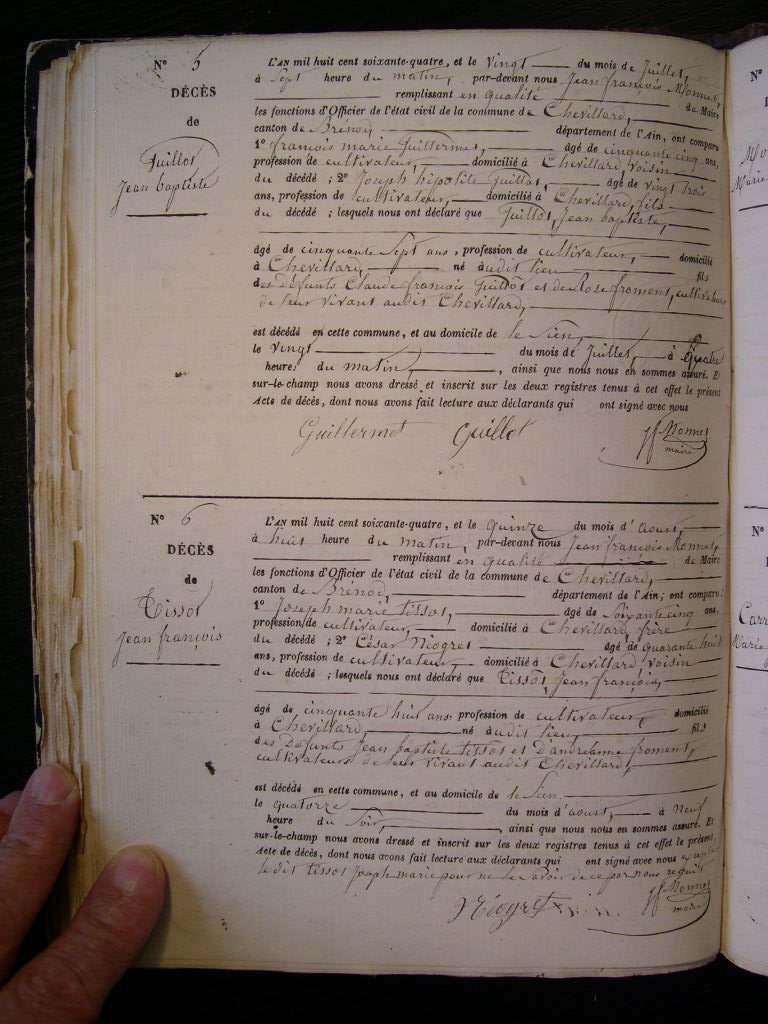 N° 5
DÉCÈS
de
Guillot
Jean baptiste
L'AN mil huit cent soixante-quatre, et le Vingt du mois de Juillet,
à Sept heure du matin, par-devant nous Jean françois Monnet,
remplissant en qualité de Maire
les fonctions d'Officier de l'état civil de la commune de Chevillard,
canton de Brénod, département de l'Ain, ont comparu
1° françois marie Guillermet, âgé de cinquante cinq ans,
profession de cultivateur, domicilié à Chevillard, voisin
du décédé ; 2° Joseph hipolite Guillot, âgé de vingt trois
ans, profession de cultivateur, domicilié à Chevillard, fils
du décédé ; lesquels nous ont déclaré que Guillot, Jean baptiste,
âgé de cinquante Sept ans, profession de cultivateur, domicilié
à Chevillard, né audit lieu fils
des défunts Claude françois Guillot et de Rose froment, cultivateurs
de leur vivant audit Chevillard,
est décédé en cette commune, et au domicile de le Sien,
le vingt du mois de Juillet, à Quatre
heures du matin, ainsi que nous nous en sommes assuré. Et
sur-le-champ nous avons dressé et inscrit sur les deux registres tenus à cet effet le présent
Acte de décès, dont nous avons fait lecture aux déclarants qui ont signé avec nous
Guillermet Guillot Jf Monnet
maire
N° 6
DÉCÈS
de
Tissot
Jean françois
L'AN mil huit cent soixante-quatre, et le Quinze du mois d'aout,
à huit heure du matin, par-devant nous Jean françois Monnet,
remplissant en qualité de Maire
les fonctions d'Officier de l'état civil de la commune de Chevillard,
canton de Brénod, département de l'Ain, ont comparu :
1° Joseph marie tissot, âgé de Soixante cinq ans,
profession de cultivateur, domicilié à Chevillard, frère
du décédé ; 2° César Niogret âgé de quarante huit
ans, profession de cultivateur, domicilié à Chevillard, voisin
du décédé ; lesquels nous ont déclaré que Tissot, Jean françois,
âgé de cinquante huit ans, profession de cultivateur, domicilié
à Chevillard, né audit lieu, fils
des Défunts Jean baptiste tissot et D'andréanne froment,
cultivateurs de leur vivant audit Chevillard,
est décédé en cette commune, et au domicile de le Sien
le quatorze du mois d'aout, à neuf
heure du Soir, ainsi que nous nous en sommes assuré. Et
sur-le-champ nous avons dressé et inscrit sur les deux registres tenus à cet effet le présent
Acte de décès, dont nous avons fait lecture aux déclarants qui ont signé avec nous excepté
le dit tissot Joseph marie pour ne le Savoir de ce par nous requis
Niogret Jf Monnet
maire